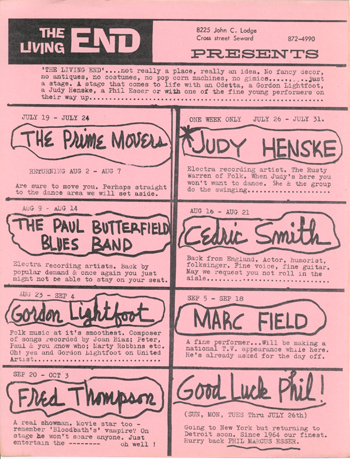 THE
LIVING END
8225 John C. Lodge
Cross street Seward
872-4990
PRESENTS
'THE LIVING END'....not really a place, really an idea. No fancy decor,
no antiques, no costumes, no pop corn machines, no gimics.........just
a stage. A stage that comes to life with an Odetta, a Gordon Lightfoot,
a Judy Henske, a Phil Esser or with one of the fine young performers on
their way up.................
JULY 19 - JULY 24
THE PRIME MOVERS
RETURNING AUG 2 - AUG 7
Are sure to move you. Perhaps straight
to the dance area we will set aside.
ONE WEEK ONLY JULY 26 - JULY 31.
JUDY HENSKE
Electra recording artist. The Rusty
warren of Folk. When Judy's here you
won't want to dance. She & the group
do the swinging.
AUG 9 - AUG 14
THE PAUL BUTTERFIELD
BLUES BAND
Electra recording artists. Back by
popular demand & once again you just
might not be able to stay on your seat.
AUG 16 - AUG 21
Cedric Smith
Back from England, Actor, humorist,
folksinger. Fine voice, fine guitar.
May we request you not roll in the
aisle.
AUG 23 - SEP 4
Gordon Lightfoot
Folk music at it's smoothest. Composer
of songs recorded by Joan Biaz; Peter,
Paul & you know who; Marty Robbins etc.
Oh! yes and Gordon Lightfoot on United
Artist.
SEP 5 - SEP 18
MARC FIELD
A fine performer...Will be making a
national T.V. appearance while here.
He's already asked for the day off.
SEP 20 - OCT 3
Fred Thompson
A real showman, movie star too -
remember 'Bloodbath's' vampire? On
stage he won't scare anyone. Just
entertain the -------- oh well !
Good Luck Phil!
(SUN, MON, TUES Thru JULY 26th)
Going to New York but returning to
Detroit soon. Since 1964 our finest.
Hurry back PHIL MARCUS ESSER.